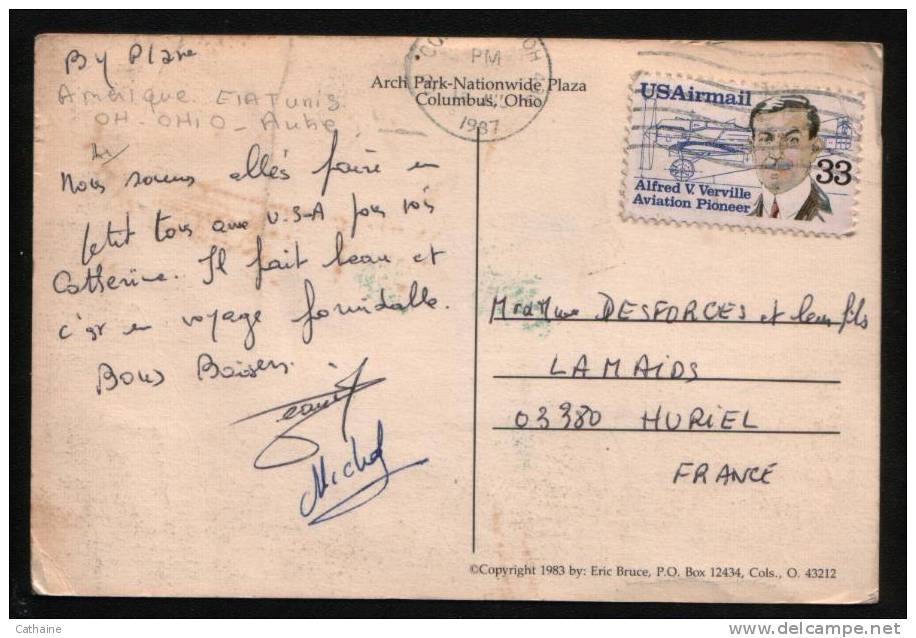 By Plane
Amérique. ETATunis.
OH-OHIO-Autre
Nous sommes allés faire un
petit tour aux U.S-A pour voir
Catherine. Il fait beau et
c'est un voyage formidable.
Bons Baisers.
Michel
Arch Park-Nationwide Plaza
Columbus, Ohio
OH
PM
1987
USAirmail
33
Alfred V. Verville
Aviation Pioneer
Mr et Mme DESFORGES et leur fils
LAMAIDS
03380 HURIEL
FRANCE
©Copyright 1983 by: Eric Bruce, P.O. Box 12434, Cols., O. 43212
Cathaine
delcampe.net